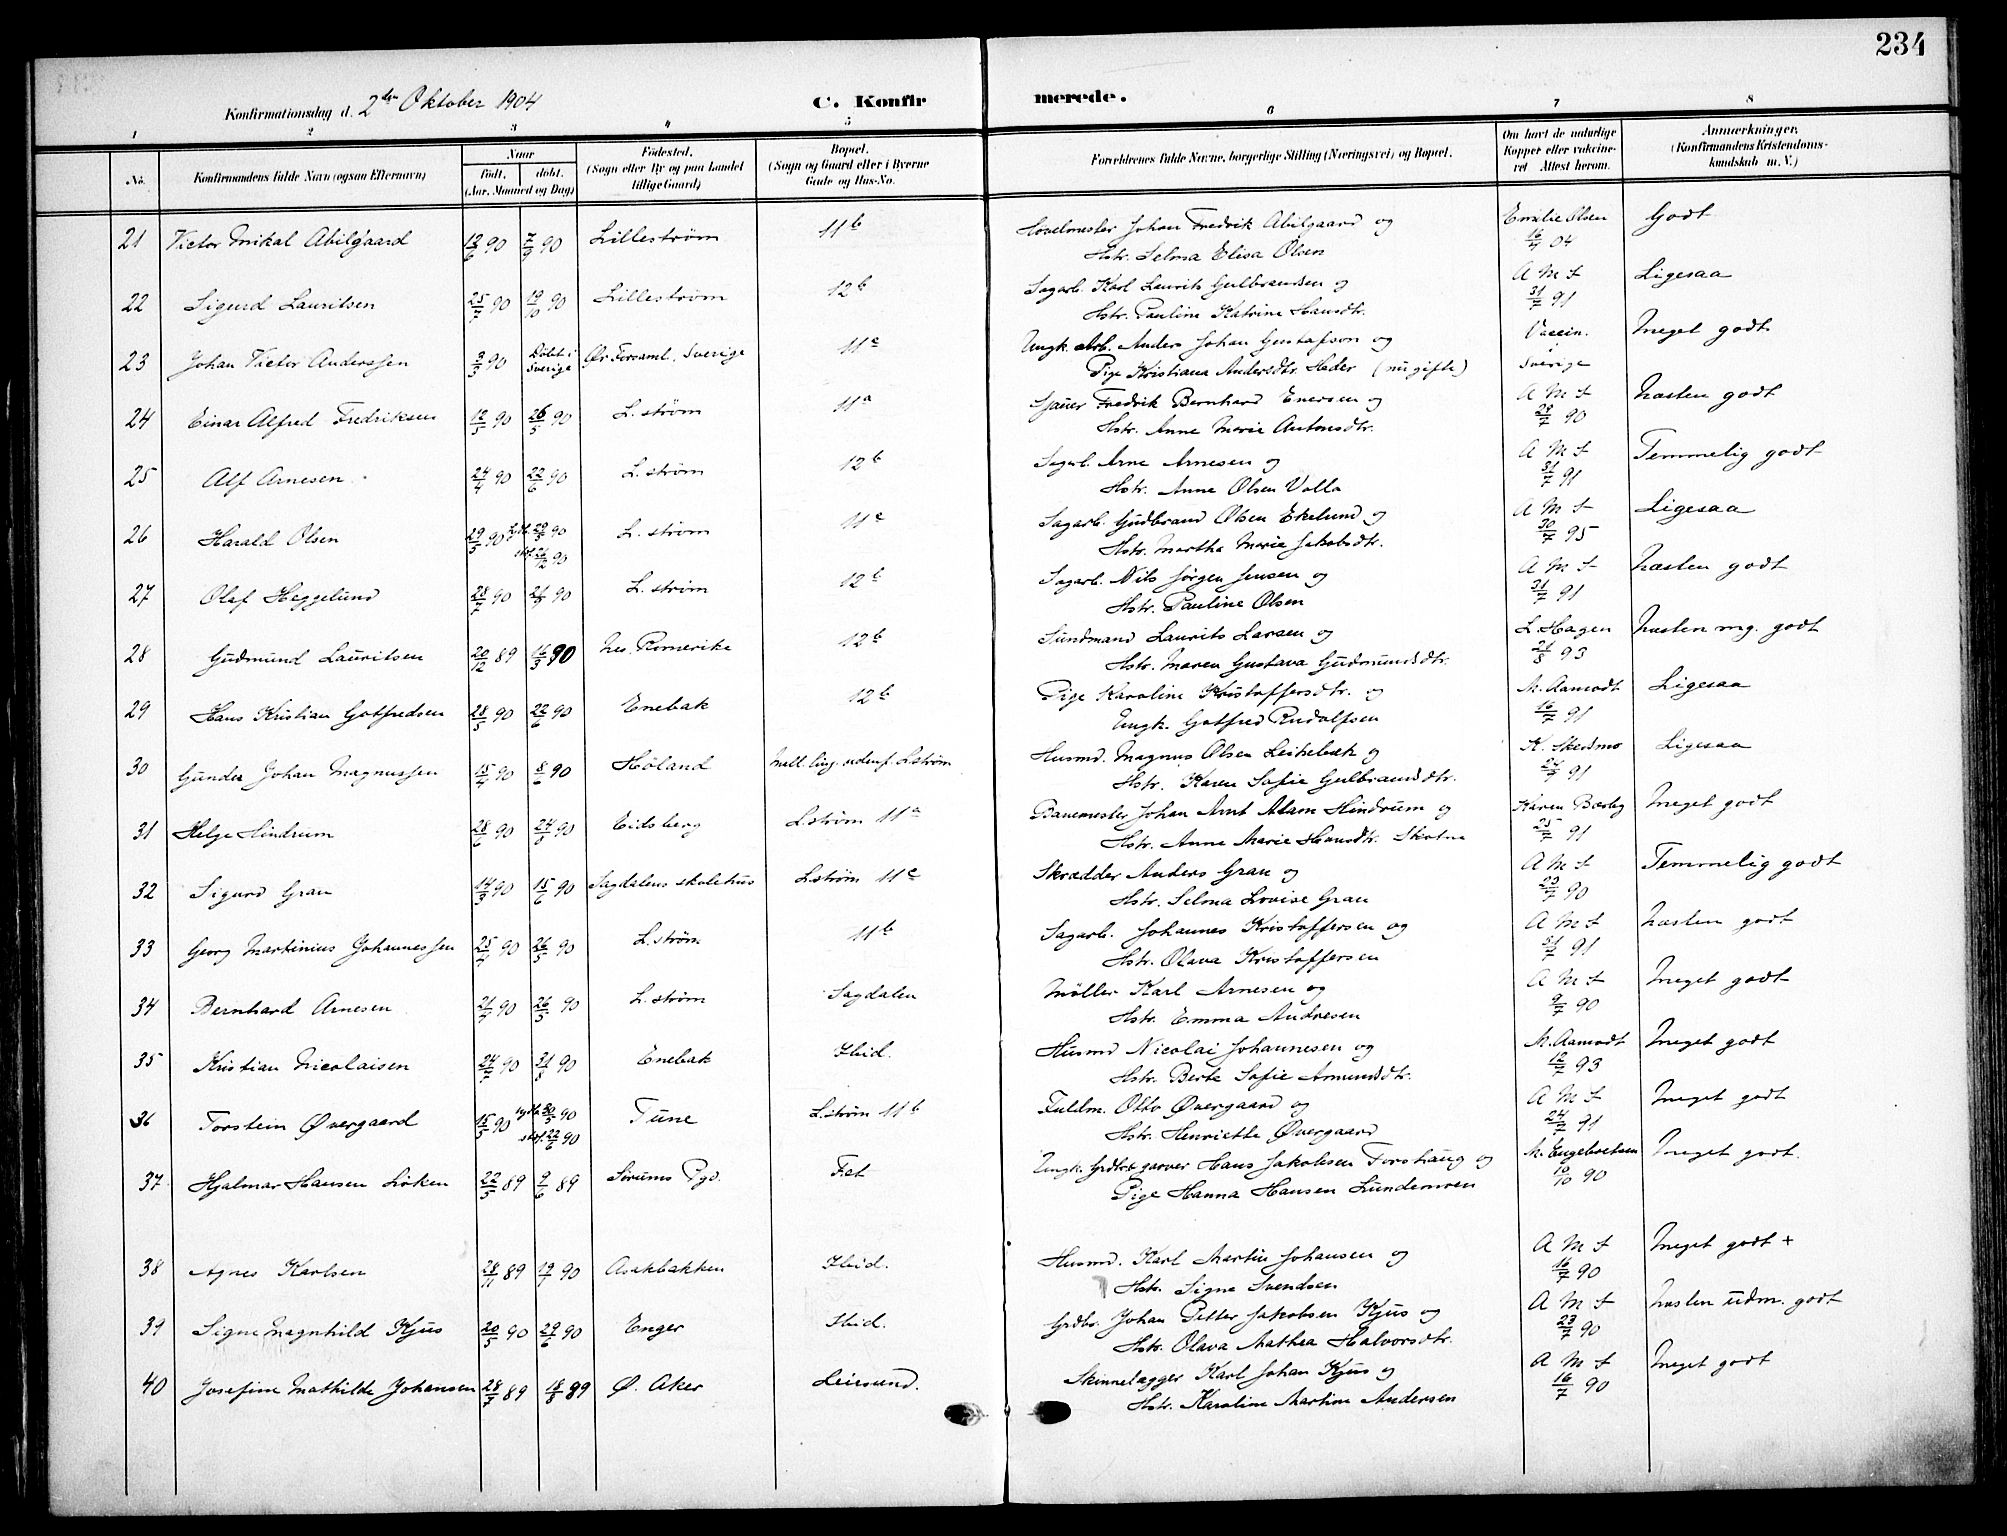 234
Konfirmationsdag d. 2den Oktober 1904 C. Konfirmerede.
1 2 3 4 5 6 7 8
No. Konfirmandens fulde Navn (ogsaa Efternavn) Naar født, døbt. (Aar, Maaned og Dag) Fødested. (Sogn eller By og paa Landet tillige Gaard) Bopæl. (Sogn og Gaard eller i Byerne Gade og Hus-No. Forældrenes fulde Navne, borgerlige Stilling (Næringsvei) og Bopæl. Om havt de naturlige Kopper eller vaccineret Attest herom. Anmærkninger, (Konfirmandens Kristendomskundskab m. V.)
21 Victor Mikal Abilgaard 12/6 90 7/9 90 Lillestrøm 11b Høvelmester Johan Fredrik Abilgaard og Emilie Olsen Godt
Hstr. Selma Elisa Olsen 16/4 04
22 Sigurd Lauritsen 25/7 90 19/10 90 Lillestrøm 12b Sagarb. Karl Laurits Gulbrandsen og A M S Ligesaa
Hstr. Pauline Katrine Hansdtr. 31/7 91
23 Johan Victor Anderssen 3/3 90 Døbt i Sverige Ør Forsaml. Sverige 11c Ungk. Arb. Anders Johan Gustafson og Vaccin. i Sverige Meget godt
Pige Kristiana Andersdtr. Heder (nu gifte)
24 Einar Alfred Fredriksen 12/5 90 26/5 90 L. strøm 11a Sjauer Fredrik Bernhard Enersen og A M S Næsten godt
Hstr. Anne Marie Antonsdtr. 28/7 90
25 Alf Arnesen 24/4 90 22/6 90 L. strøm 12b Sagarb. Arne Arnesen og A M S Temmelig godt
Hstr. Anne Olsen Volla 31/7 91
26 Harald Olsen 29/5 90 29/5 90 26/12 90 L. strøm 11c Sagarb. Gudbrand Olsen Ekelund og A M S Ligesaa
Hstr. Martha Marie Jakobsdtr. 30/7 95
27 Olaf Heggelund 28/7 90 21/9 90 L. strøm 12b Sagarb. Nils Jørgen Jensen og A M S Næsten godt
Hstr. Pauline Olsen 31/7 91
28 Gudmund Lauritsen 20/12 89 16/3 90 Nes. Romerike 12b Sundmand Laurits Larsen og L. Hagen Næsten mg. godt
Hstr. Maren Gustava Gudmundsdtr. 21/8 93
29 Hans Kristian Gotfredsen 28/5 90 22/6 90 Enebak 12b Pige Karoline Kristoffersdtr. og M. Aamodt Ligesaa
Ungk. Gotfred Rudolfsen 16/7 91
30 Gunder Johan Magnussen 15/4 90 8/6 90 Høland Husmd. Magnus Olsen Leikebæk og K. Skedsmo Ligesaa
Hstr. Karen Sofie Gulbrandsdtr. 91
31 Helge Hindrum 28/6 90 24/8 90 Eidsberg L.strøm 11a Banemester Johan Arnt Adam Hindrum og Karen Bærby Meget godt
Hstr. Anne Marie Hansdtr. Skotne 25/7 91
32 Sigurd Gran 14/3 90 15/6 90 Sagdalens skolehus L.strøm 11c Skrædder Anders Gran og A M S Temmelig godt
Hstr. Selma Lovise Gran 29/7 90
33 Georg Martinius Johannessen 25/4 90 26/5 90 L. strøm 11b Sagarb. Johannes Kristoffersen og A M S Næsten godt
Hstr. Olava Kristoffersen 31/7 91
34 Bernhard Arnesen 21/4 90 26/5 90 L. strøm Sagdalen Møller Karl Arnesen og A M S Meget godt
Hstr. Emma Andresen 9/7 90
35 Kristian Nicolaisen 24/7 90 31/8 90 Enebak Ibid. Husmd Nicolai Johannesen og M. Aamodt Meget godt
Hstr. Berte Sofie Amundsdtr. 12/7 93
36 Torstein Øvergaard 15/5 90 30/5 90 22/6 90 Tune L.strøm 11b Fuldm. Otto Øvergaard og A M S Meget godt
Hstr. Henriette Øvergaard 24/7 91
37 Hjalmar Hansen Løken 22/5 89 9/6 89 Sørums Pgd. Fet Hans Jakobsen Forshaug og M. Engebretsen Meget godt.
Pige Hanna Hansen Lundemoen 19/10 90
38 Agnes Karlsen 28/11 89 19/1 90 Asakbakken Ibid. Husmd. Karl Martin Johansen og A M S Meget godt +
Hstr. Signe Svendsen 16/7 90
39 Signe Magnhild Kjus 20/5 90 29/6 90 Enger Ibid. Grdbr. Johan Petter Jakobsen Kjus og A M S Næsten udm. godt
Hstr. Olava Mathea Halvorsdtr. 23/7 90
40 Josefine Mathilde Johansen 28/7 89 18/8 89 Ø. Aker Leirsund. Skinnelægger Karl Johan Kjus og A M S Meget godt
Hstr. Karoline Martine Andersen 16/7 90